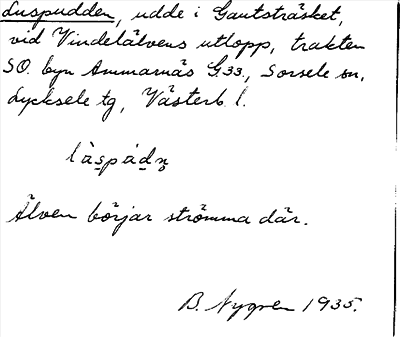 Luspudden, udde i Gautsträsket,
vid Vindelälvens utlopp, trakten
SO. byn Ammarnäs G.33., Sorsele sn,
Lycksele tg, Västerb. l.
Älven börjar strömma där.
B. Nygren 1935.